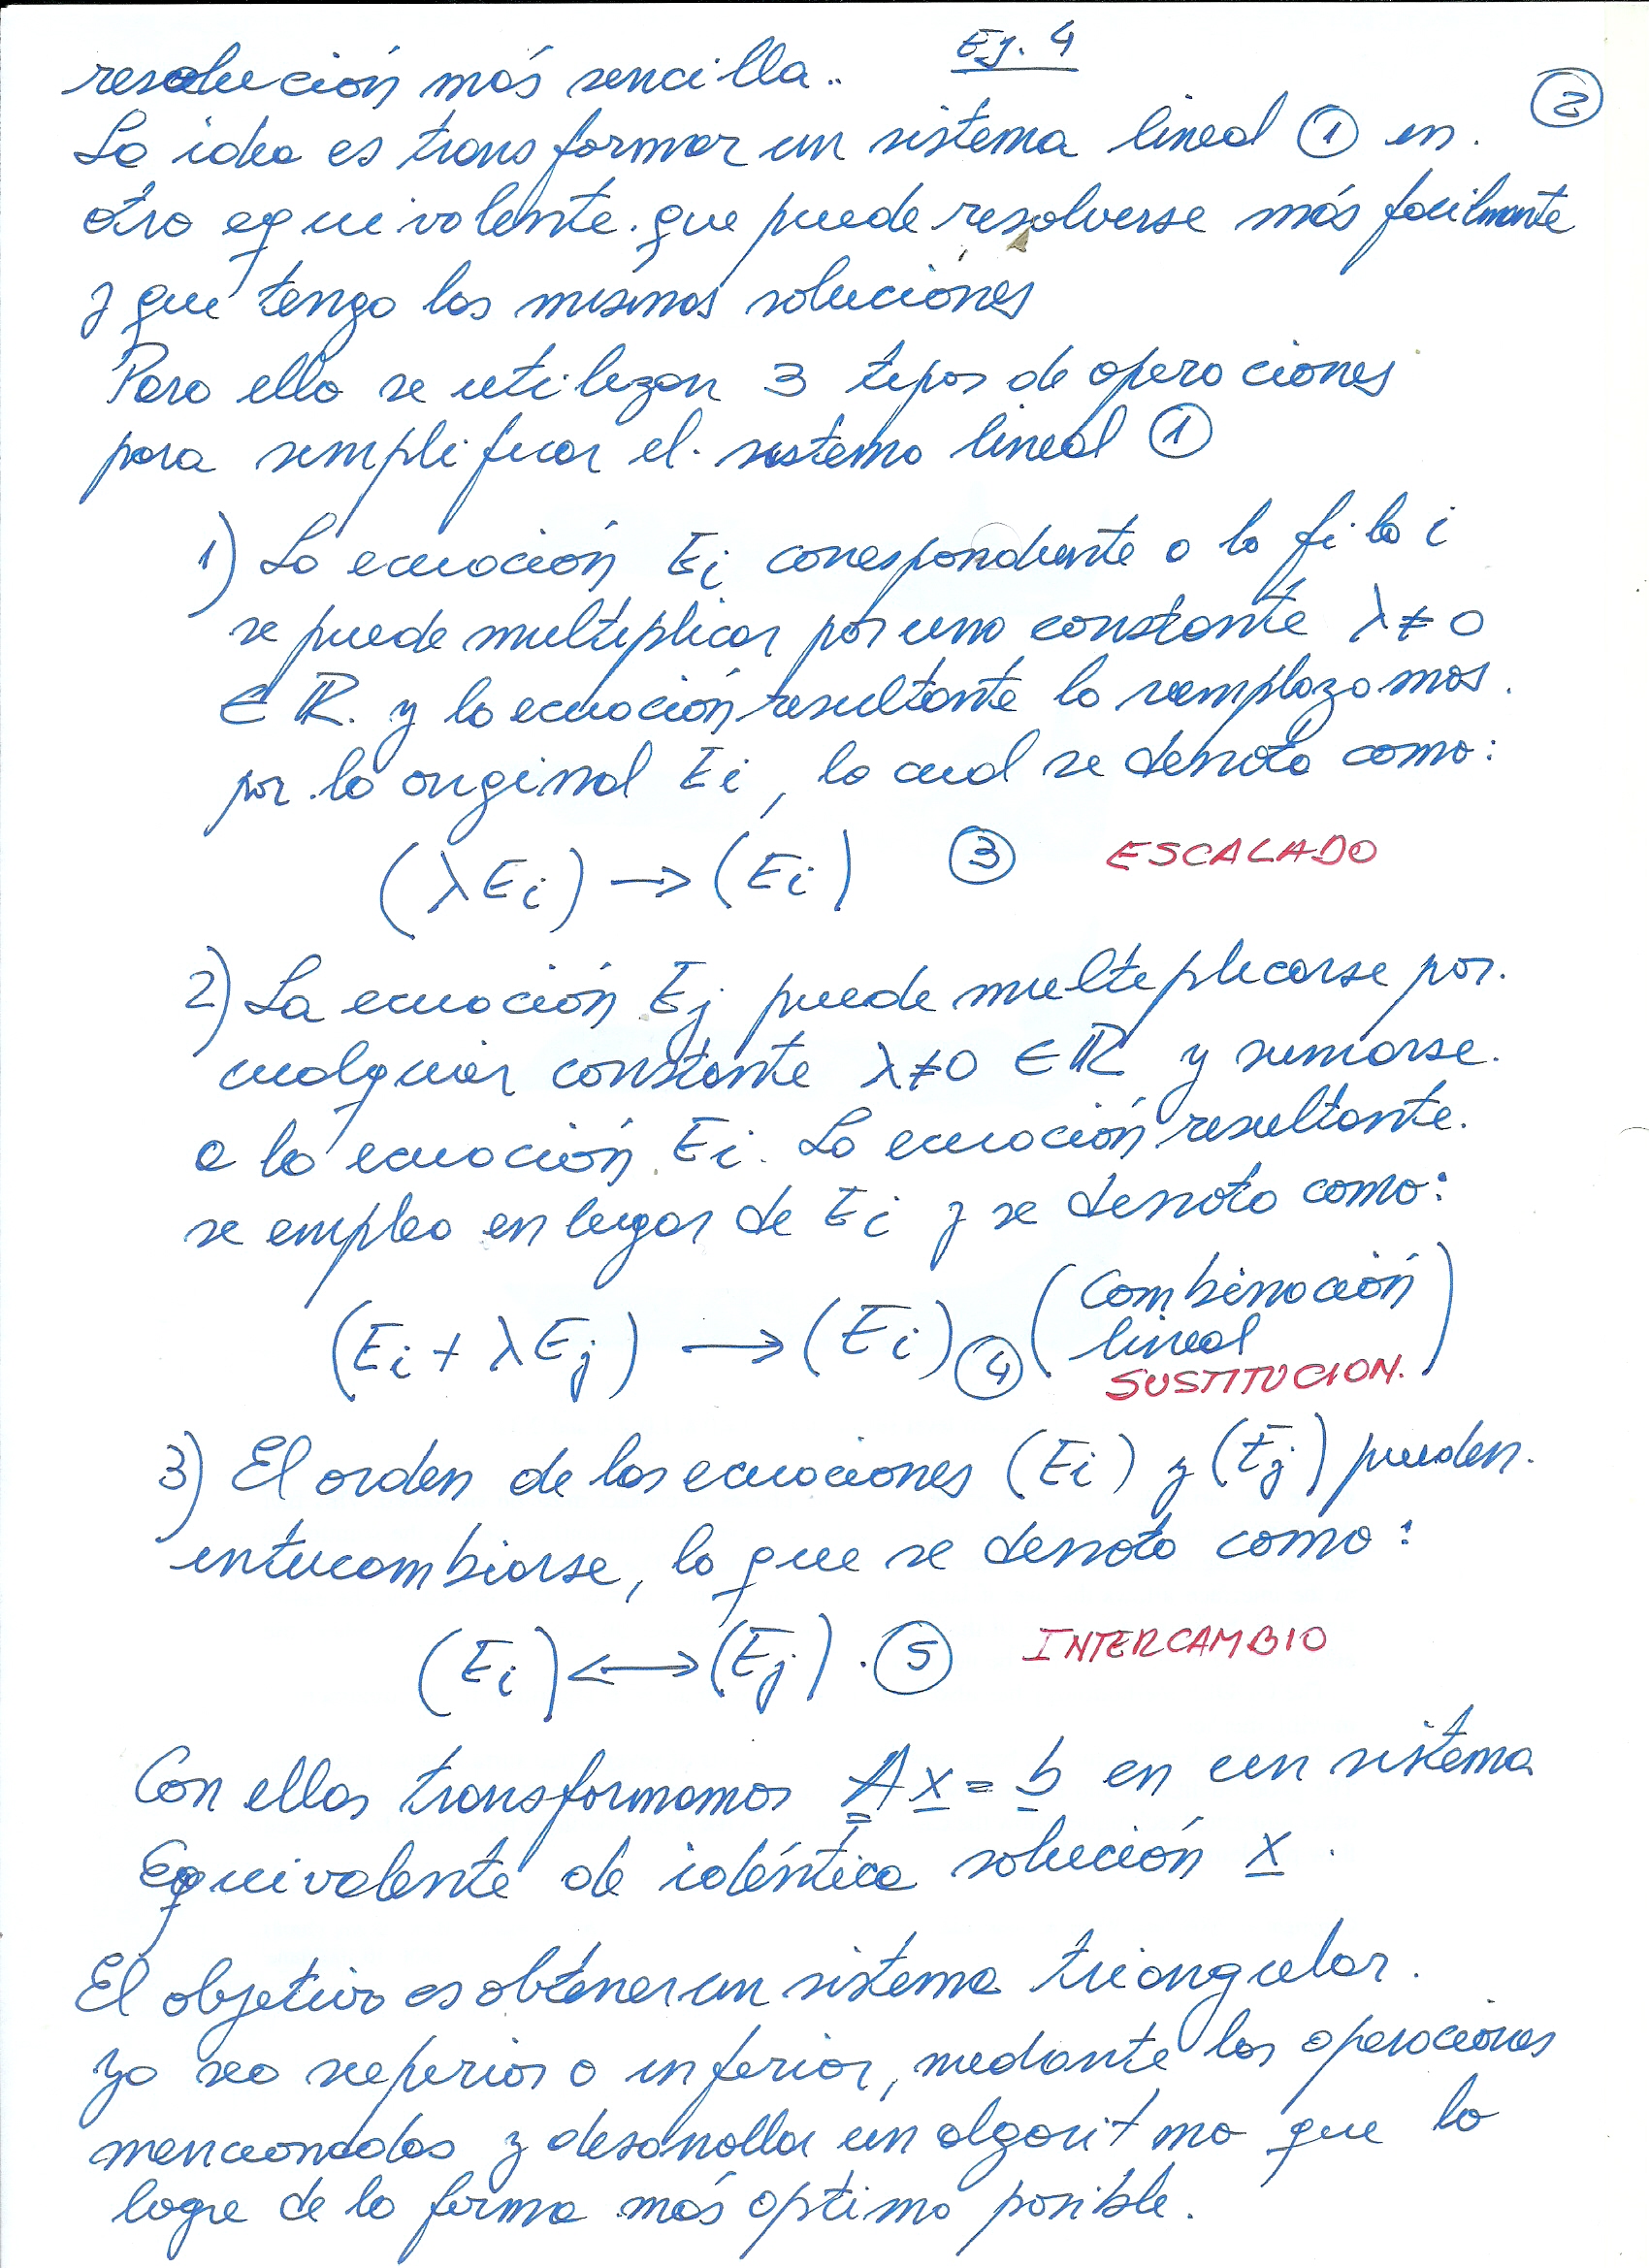 Ej. 4
resolución más sencilla..
2
La idea es transformar un sistema lineal ① en.
otro equivalente. que puede resolverse más facilmente
y que tenga las mismas soluciones
Para ello se utilizan 3 tipos de operaciones
para simplificar el sistema lineal ①
1) La ecuación Ei correspondiente a la fila i
se puede multiplicar por una constante λ≠0
∈ ℝ. y la ecuación resultante la reemplazamos.
por la original Ei, lo cual se denota como:
(λEi) → (Ei) ③ ESCALADO
2) La ecuación Ej puede multiplicarse por.
cualquier constante λ≠0 ∈ ℝ y sumarse.
a la ecuación Ei. La ecuación resultante.
se emplea en lugar de Ei y se denota como:
(Ei + λEj) → (Ei) ④ (Combinación
lineal)
SUSTITUCION.
3) El orden de las ecuaciones (Ei) y (Ej) pueden.
intercambiarse, lo que se denota como:
(Ei) ↔ (Ej). ⑤ INTERCAMBIO
Con ellas transformamos A x = b en un sistema
Equivalente de idéntica solución x.
El objetivo es obtener un sistema triangular.
ya sea superior o inferior, mediante las operaciones
mencionadas y desarrollar un algoritmo que lo
logre de la forma más optima posible.